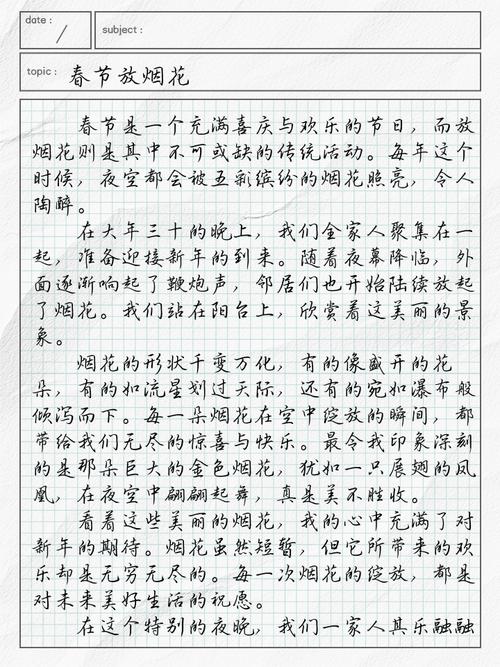 date :
subject :
topic : 春节放烟花
春节是一个充满喜庆与欢乐的节日，而放
烟花则是其中不可或缺的传统活动。每年这个
时候，夜空都会被五彩缤纷的烟花照亮，令人
陶醉。
在大年三十的晚上，我们全家人聚集在一
起，准备迎接新年的到来。随着夜幕降临，外
面逐渐响起了鞭炮声，邻居们也开始陆续放起
了烟花。我们站在阳台上，欣赏着这美丽的景
象。
烟花的形状千变万化，有的像盛开的花
朵，有的如流星划过天际，还有的宛如瀑布般
倾泻而下。每一朵烟花在空中绽放的瞬间，都
带给我们无尽的惊喜与快乐。最令我印象深刻
的是那朵巨大的金色烟花，犹如一只展翅的凤
凰，在夜空中翩翩起舞，真是美不胜收。
看着这些美丽的烟花，我的心中充满了对
新年的期待。烟花虽然短暂，但它所带来的欢
乐却是无穷无尽的。每一次烟花的绽放，都是
对未来美好生活的祝愿。
在这个特别的夜晚，我们一家人其乐融融